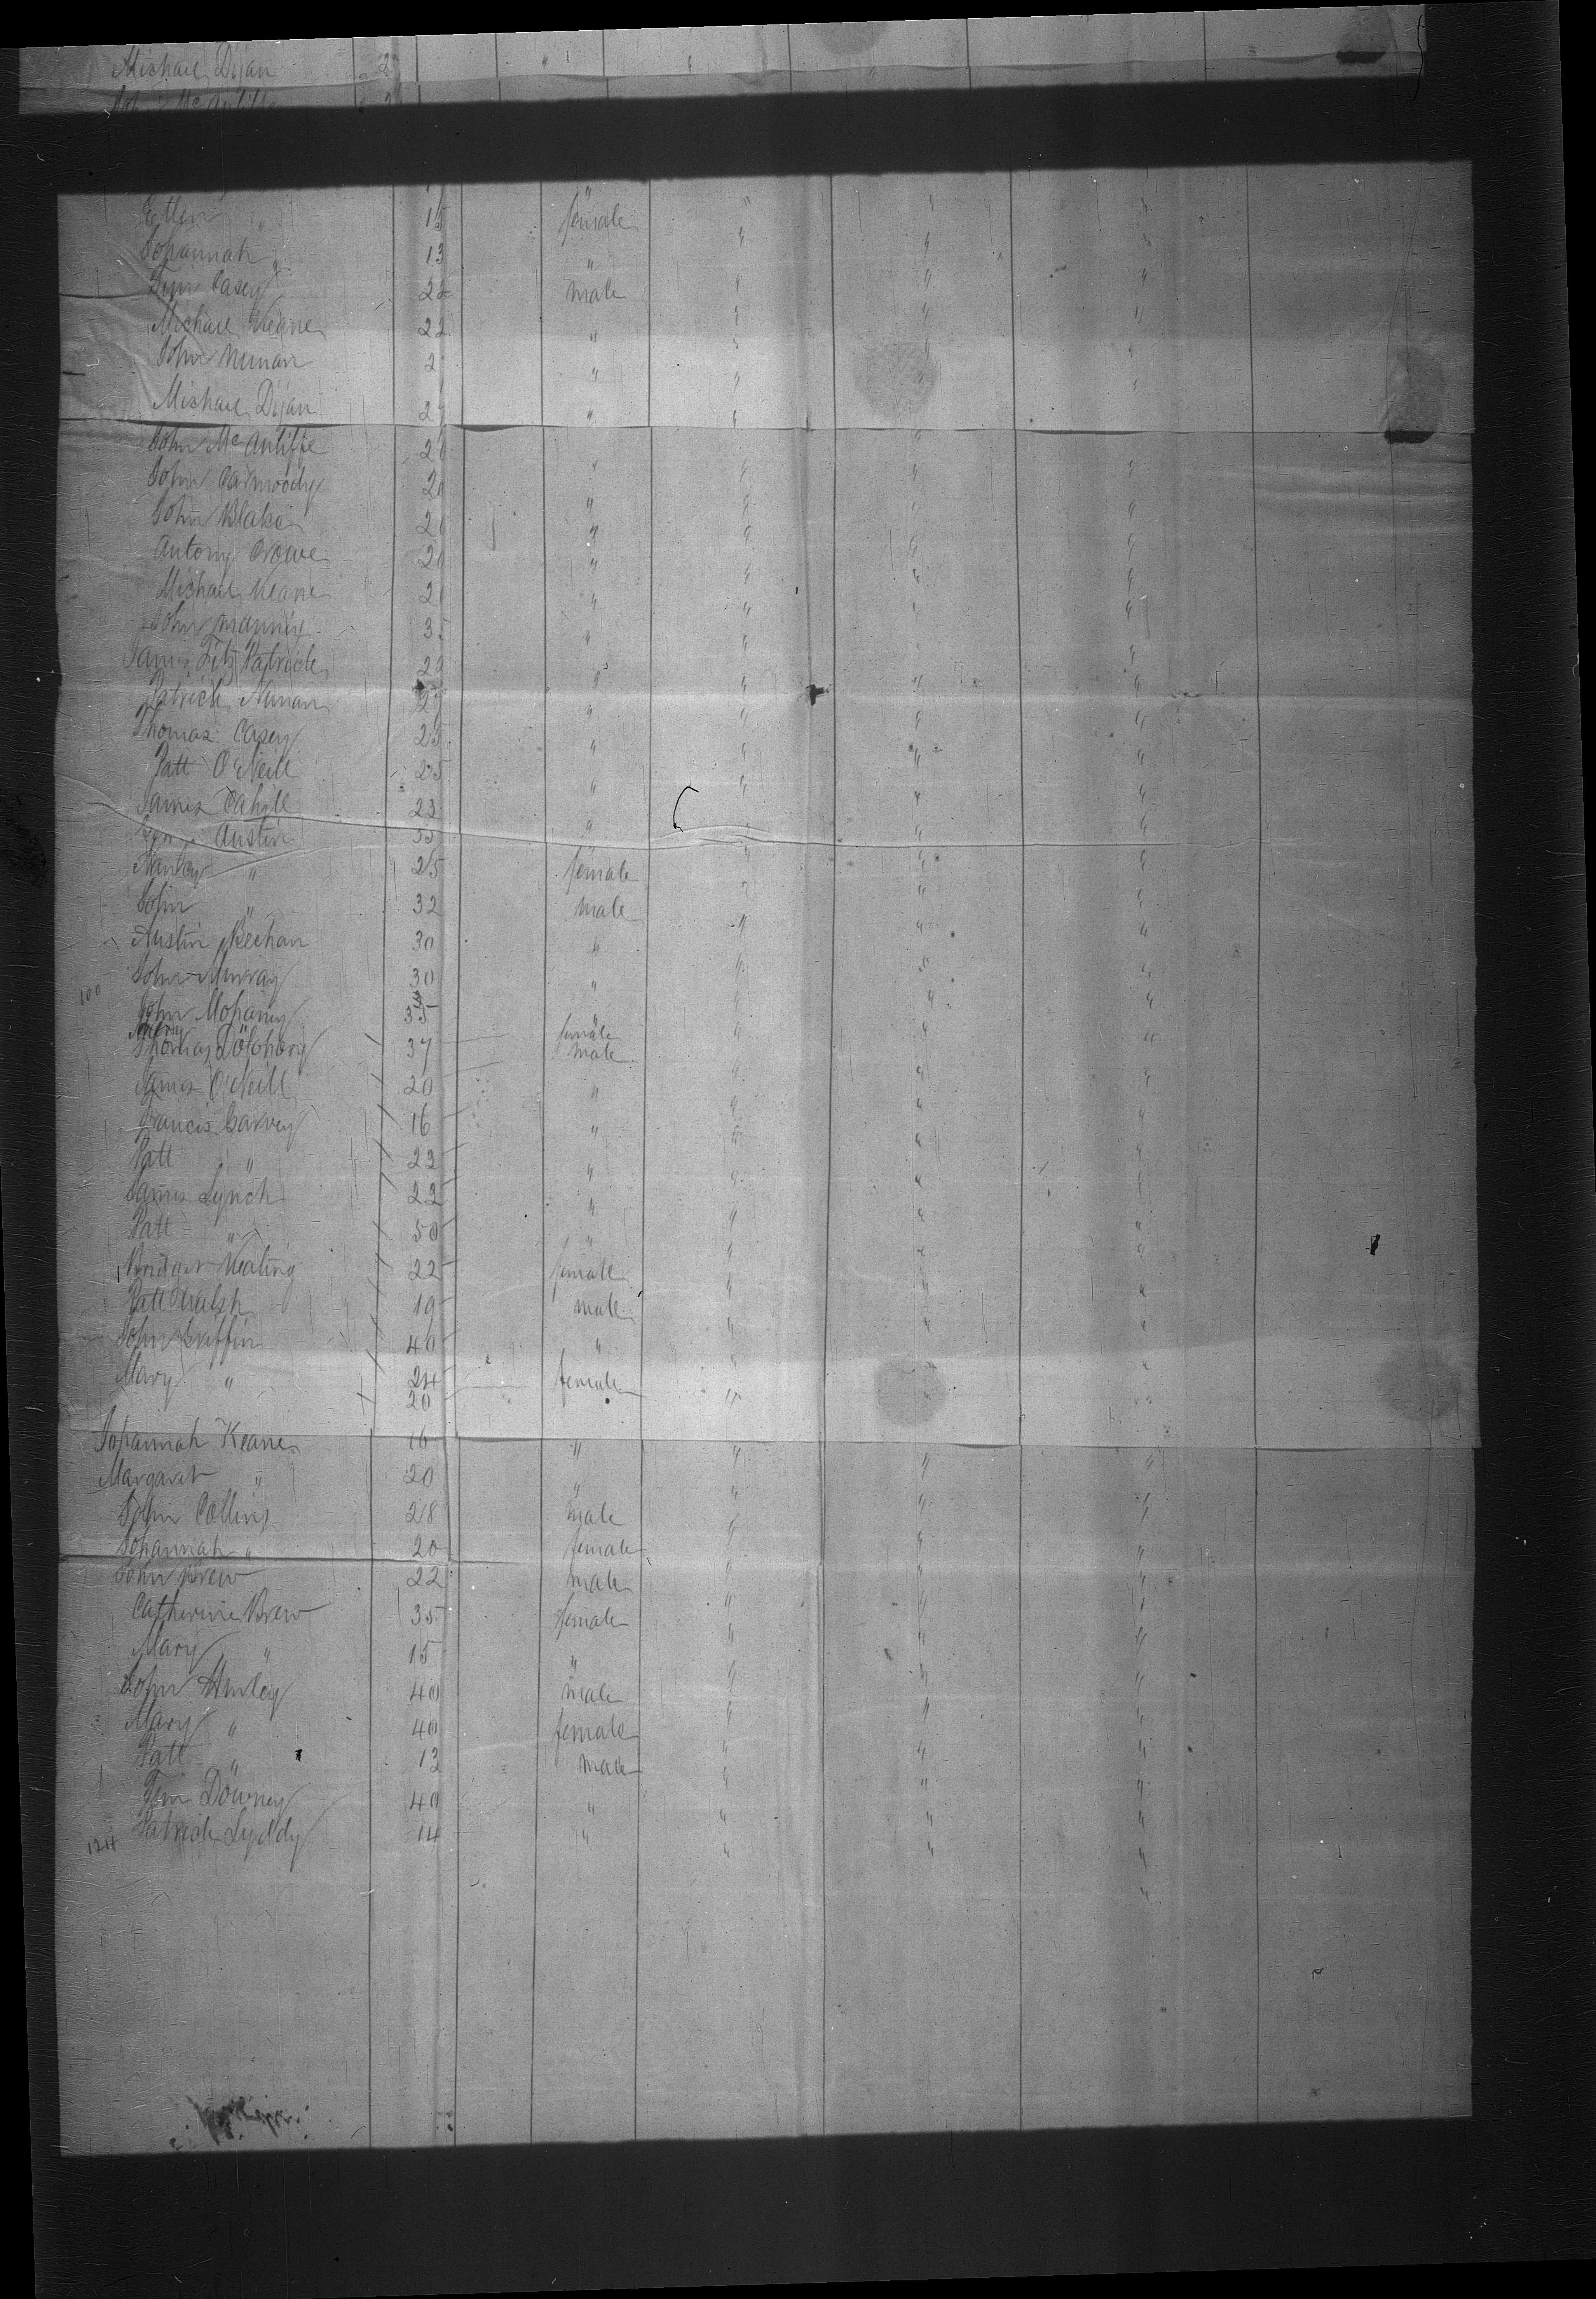 Michael Dijan 2
John McAuliffe
15 female
Johannah " 13 "
Tim Casey 22 male "
Michael Keane 22 "
John Nunan 2 "
Michael Dijan 2 "
John McAuliffe 20 "
John Carmoody 20 "
John Blake 20 "
Antony Crowe 20 "
Michael Keane 2 "
John Manning 35 "
James Fitz Patrick 23 "
Patrick Nunan 2 "
Thomas Casey 25 "
Patt O'Neill 25 "
James Cahill 23 "
Austin 35 "
" 25 female "
John " 32 male "
Austin Keehan 30 "
John Murray 30 "
100
John Mohaney 35 "
Mary female
Thomas 37 male "
James O'Neill 20 "
Francis Garvey 16 "
Patt " 23 "
James Lynch 22 "
Patt " 50 "
Bridget Keating 22 female "
Patt Walsh 19 male "
John Griffin 40 "
Mary " 24 female "
20
Johannah Keane 16 "
Margaret " 20 "
John Collins 28 male "
Johannah " 20 female "
John Brew 22 male "
Catherine Brew 35 female "
Mary " 15 "
John Hurley 40 male "
Mary " 40 female "
Patt " 13 male "
Tim Downey 40 "
124 Patrick Lyddy 14 "